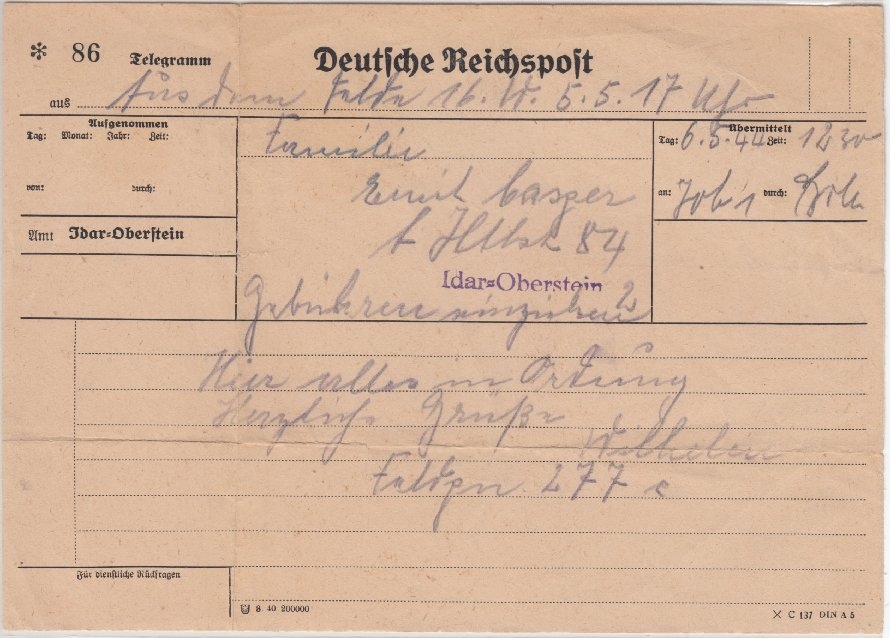 * 86 Telegramm Deutsche Reichspost
aus Aus dem Felde 16. W. 5.5. 17 Uhr
Aufgenommen
Tag: Monat: Jahr: Zeit:
von: durch:
Amt Idar-Oberstein
Familie
Casper
84
Idar-Oberstein 2
Gebühren einziehen
Übermittelt
Tag: 6.5.44 Zeit: 1230
an: durch:
Hier alles in Ordnung
Herzliche Grüße
Wilhelm
277 c
Für dienstliche Rückfragen
8. 40 200000
C 137 DIN A 5